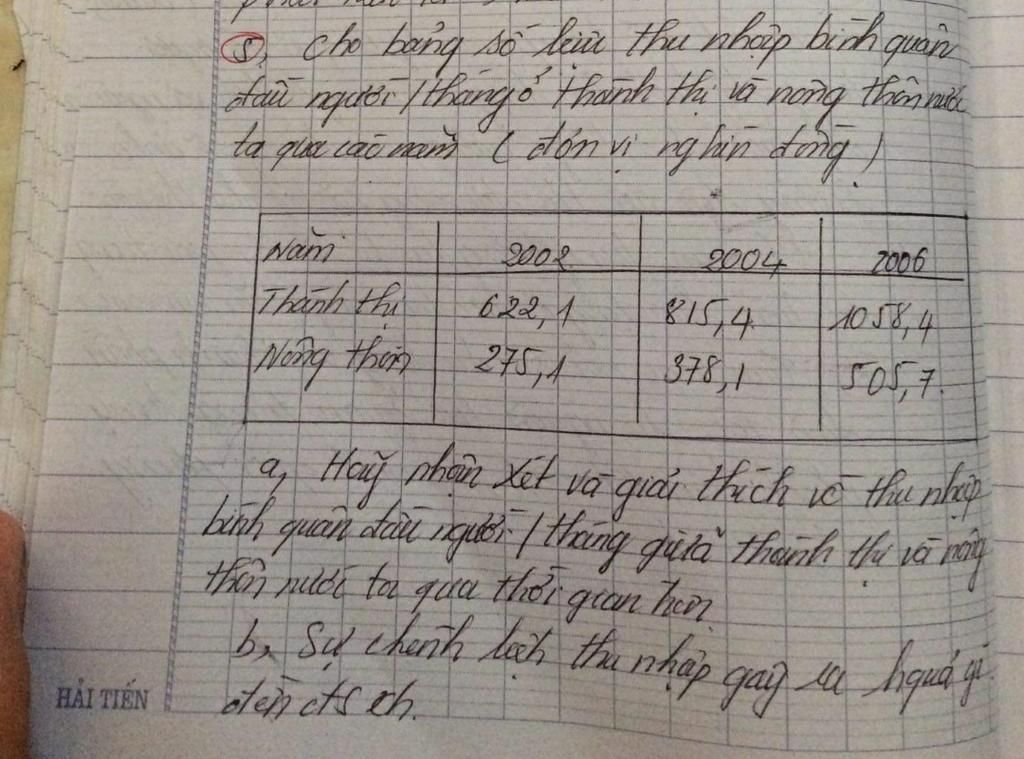 5, Cho bảng số liệu thu nhập bình quân
đầu người / tháng ở thành thị và nông thôn nước
ta qua các năm ( đơn vị nghìn đồng )
Năm 2002 2004 2006
Thành thị 622,1 815,4 1058,4
Nông thôn 275,1 378,1 505,7
a, Hãy nhận xét và giải thích về thu nhập
bình quân đầu người / tháng giữa thành thị và nông
thôn nước ta qua thời gian trên
b, Sự chênh lệch thu nhập gây ra hquả gì
đến đs xh.
HẢI TIẾN